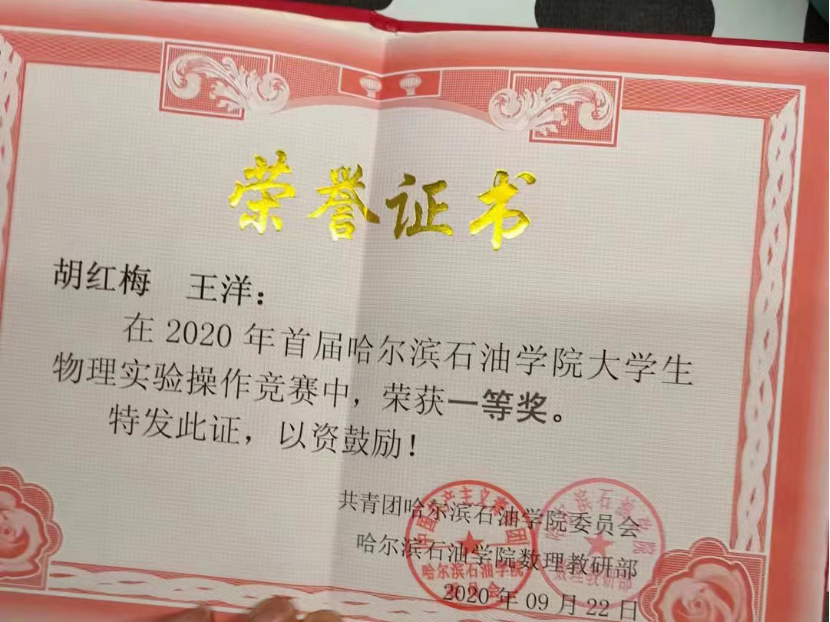 荣誉证书
胡红梅 王洋：
在 2020 年首届哈尔滨石油学院大学生
物理实验操作竞赛中，荣获一等奖。
特发此证，以资鼓励！
共青团哈尔滨石油学院委员会
哈尔滨石油学院数理教研部
2020 年 09 月 22 日
哈尔滨石油学院
数理教研部